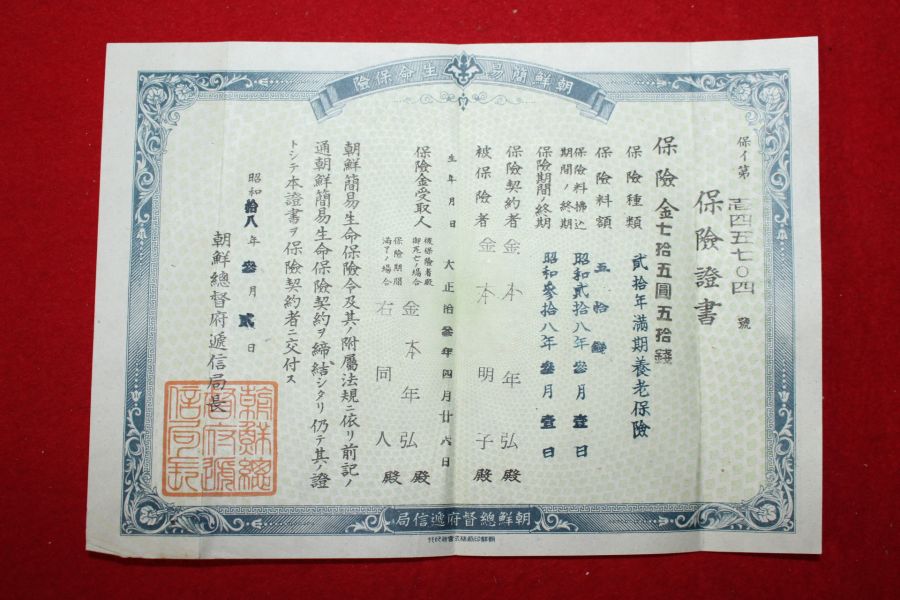 朝鮮簡易生命保險
保イ第壱四五七〇四號
保險證書
保險金七拾五圓五拾錢
保險種類 貳拾年滿期養老保險
保險料額 五拾錢
保險料拂込期間ノ終期 昭和貳拾八年參月壹日
保險期間ノ終期 昭和參拾八年參月壹日
保險契約者 金本年弘殿
被保險者 金本明子殿
生年月日 大正拾參年四月廿六日
保險金受取人
被保險者殿御死亡ノ場合 金本年弘殿
保險期間滿了ノ場合 右同人殿
朝鮮簡易生命保險令及其ノ附屬法規ニ依リ前記ノ
通朝鮮簡易生命保險契約ヲ締結シタリ仍テ其ノ證
トシテ本證書ヲ保險契約者ニ交付ス
昭和拾八年參月貳日
朝鮮總督府遞信局長
朝鮮總督府遞信局長
朝鮮總督府遞信局
朝鮮印刷株式會社印行